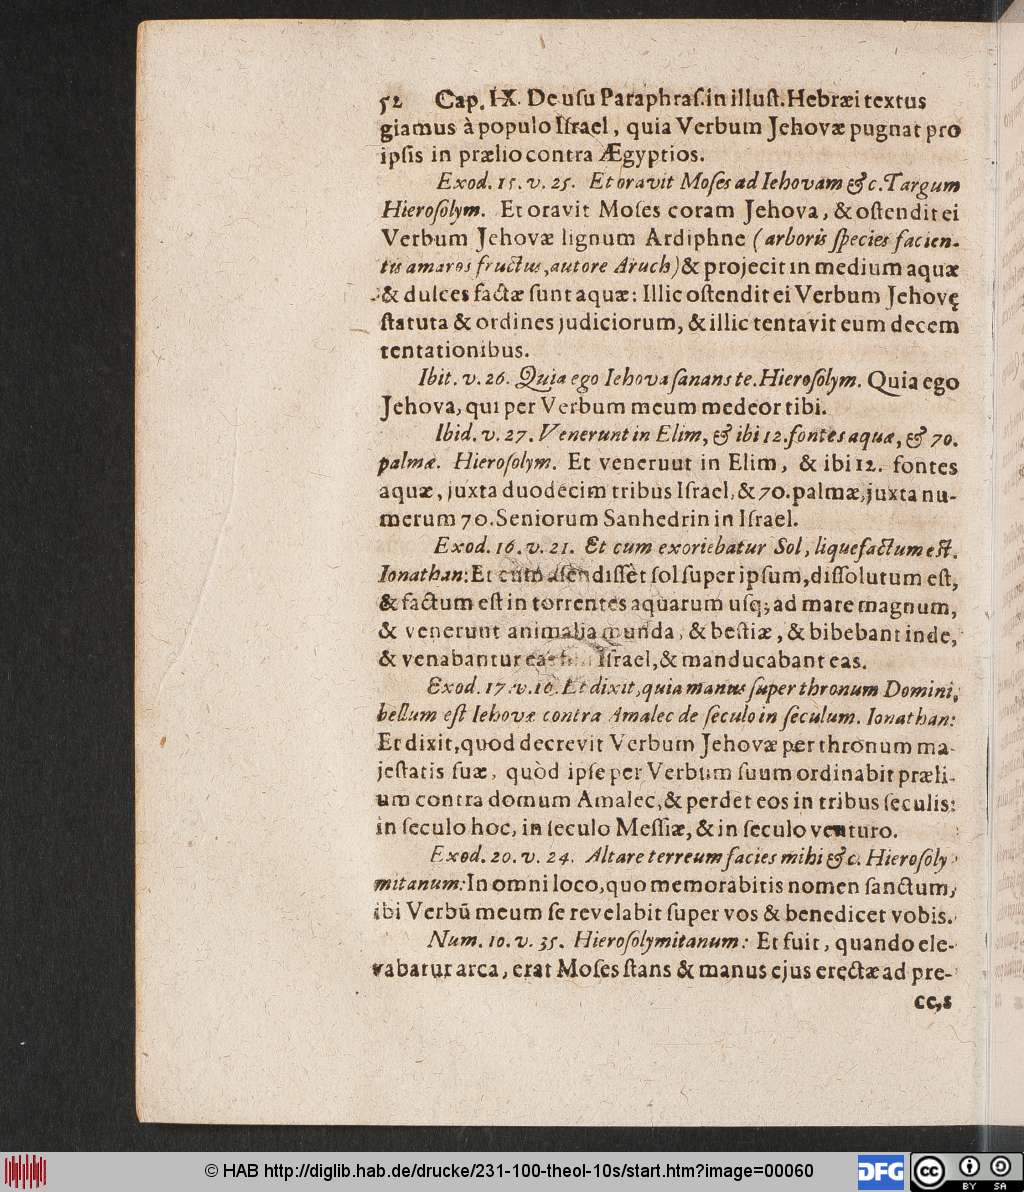 52 Cap. IX. De usu Paraphras. in illust. Hebræi textus
giamus à populo Israel, quia Verbum Jehovæ pugnat pro
ipsis in prælio contra Ægyptios.
Exod. 15. v. 25. Et oravit Moses ad Iehovam &c. Targum
Hierosolym. Et oravit Moses coram Jehova, & ostendit ei
Verbum Jehovæ lignum Ardiphne (arboris species facien-
tis amaros fructus, autore Aruch) & projecit in medium aquæ
& dulces factæ sunt aquæ: Illic ostendit ei Verbum Jehovę
statuta & ordines judiciorum, & illic tentavit eum decem
tentationibus.
Ibit. v. 26. Quia ego Iehova sanans te. Hierosolym. Quia ego
Jehova, qui per Verbum meum medeor tibi.
Ibid. v. 27. Venerunt in Elim, & ibi 12. fontes aquæ, & 70.
palmæ. Hierosolym. Et venerunt in Elim, & ibi 12. fontes
aquæ, juxta duodecim tribus Israel, & 70. palmæ, juxta nu-
merum 70. Seniorum Sanhedrin in Israel.
Exod. 16. v. 21. Et cum exoriebatur Sol, liquefactum est.
Ionathan: Et cum asendissèt sol super ipsum, dissolutum est,
& factum est in torrentes aquarum usq; ad mare magnum,
& venerunt animalia munda, & bestiæ, & bibebant inde,
& venabantur eas Israel, & manducabant eas.
Exod. 17. v. 16. Et dixit, quia manus super thronum Domini,
bellum est Iehovæ contra Amalec de seculo in seculum. Ionathan:
Et dixit, quod decrevit Verbum Jehovæ per thronum ma-
jestatis suæ, quòd ipse per Verbum suum ordinabit præli-
um contra domum Amalec, & perdet eos in tribus seculis:
in seculo hoc, in seculo Messiæ, & in seculo venturo.
Exod. 20. v. 24. Altare terreum facies mihi &c. Hierosoly-
mitanum: In omni loco, quo memorabitis nomen sanctum,
ibi Verbū meum se revelabit super vos & benedicet vobis.
Num. 10. v. 35. Hierosolymitanum: Et fuit, quando ele-
vabatur arca, erat Moses stans & manus ejus erectæ ad pre-
cc,s
© HAB http://diglib.hab.de/drucke/231-100-theol-10s/start.htm?image=00060
DFG
cc
BY SA